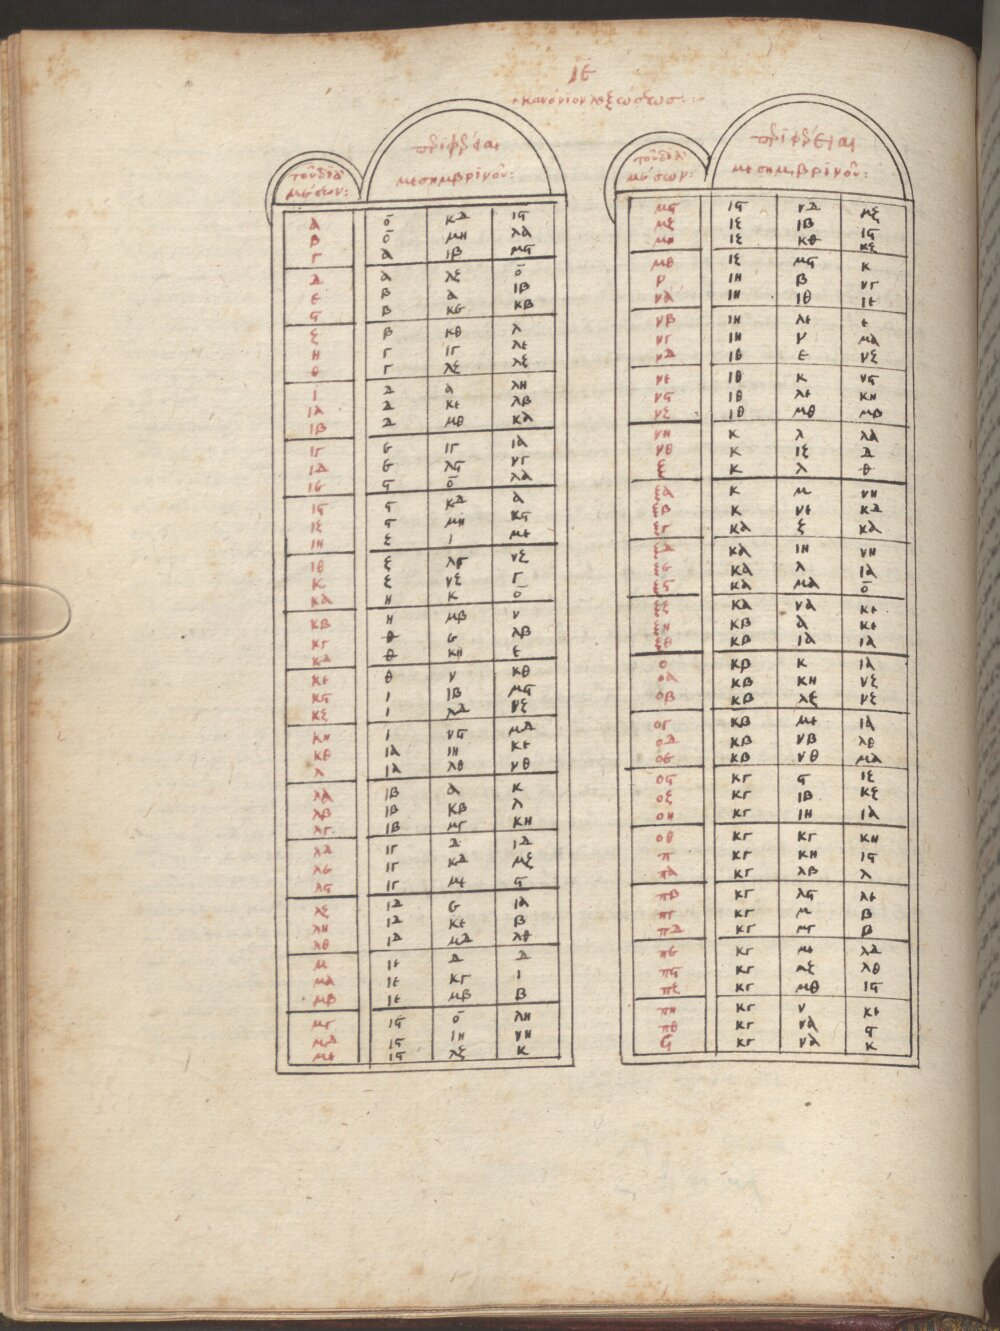 ιε
κανόνιον λοξώσεως
τοῦ διὰ μέσων:
περιφέρειαι μεσημβρινοῦ:
α ο κδ ιϛ
β ο μη λα
γ α ιβ μϛ
δ α λζ ο
ε β α ιβ
ϛ β κε κβ
ζ β κθ λ
η γ ιγ λε
θ γ λζ λζ
ι δ α λη
ια δ κε λβ
ιβ δ μθ κα
ιγ ε ιγ ια
ιδ ε λϛ νγ
ιε ϛ ο λα
ιϛ ϛ κδ α
ιζ ϛ μη κϛ
ιη ζ ι με
ιθ ζ λγ νζ
κ ζ νζ γ
κα η κ ο
κβ η μβ ν
κγ θ ε λβ
κδ θ κη ε
κε θ ν κθ
κϛ ι ιβ μϛ
κζ ι λδ νζ
κη ι νϛ μδ
κθ ια ιη κε
λ ια λθ νθ
λα ιβ α κ
λβ ιβ κβ λ
λγ ιβ μγ κη
λδ ιγ δ ιδ
λε ιγ κδ μζ
λϛ ιγ με ϛ
λζ ιδ ε ια
λη ιδ κε β
λθ ιδ μδ λθ
μ ιε δ δ
μα ιε κγ ι
μβ ιε μβ β
μγ ιϛ ο λη
μδ ιϛ ιη νη
με ιϛ λζ κ
τοῦ διὰ μέσων:
περιφέρειαι μεσημβρινοῦ:
μϛ ιϛ νδ μζ
μζ ιζ ιβ ιϛ
μη ιζ κθ κζ
μθ ιζ μϛ κ
ν ιη β νγ
να ιη ιθ ιε
νβ ιη λε ε
νγ ιη ν μα
νδ ιθ ε νζ
νε ιθ κ νϛ
νϛ ιθ λε κη
νζ ιθ μθ μβ
νη κ λ λα
νθ κ ιζ δ
ξ κ λ θ
ξα κ μ νη
ξβ κ νε κδ
ξγ κα ζ κα
ξδ κα ιη νη
ξε κα λ ια
ξϛ κα μα ο
ξζ κα να κε
ξη κβ α κε
ξθ κβ ια ια
ο κβ κ ια
οα κβ κη νζ
οβ κβ λζ νζ
ογ κβ με ια
οδ κβ νβ λθ
οε κβ νθ μα
οϛ κγ ϛ ιζ
οζ κγ ιβ κζ
οη κγ ιη ια
οθ κγ κγ κη
π κγ κη ιϛ
πα κγ λβ λ
πβ κγ λϛ λε
πγ κγ μ β
πδ κγ μγ β
πε κγ με λδ
πϛ κγ μζ λθ
πζ κγ μθ ιϛ
πη κγ ν κε
πθ κγ να ϛ
ϟ κγ να κ